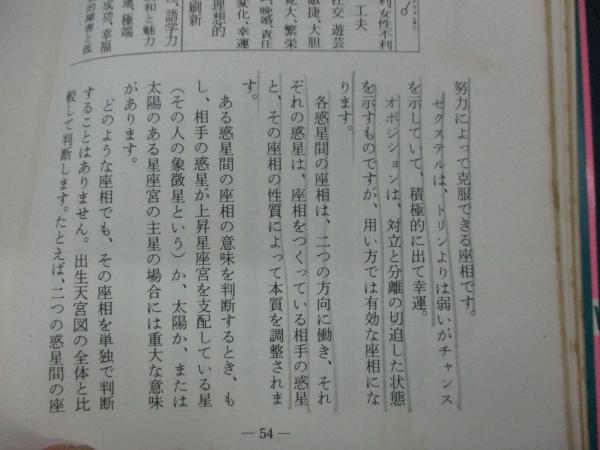 利女性不利
工夫
社交 遊芸
敏捷、大胆
寛大、繁栄
晩婚、責任
変化、幸運
理想的
刷新
語学力
和と魅力
感、極端
成功、幸福
的障害と孤
努力によって克服できる座相です。
セクステルは、トリンよりは弱いがチャンス
を示していて、積極的に出て幸運。
オポジションは、対立と分離の切迫した状態
を示すものですが、用い方では有効な座相にな
ります。
各惑星間の座相は、二つの方向に働き、それ
ぞれの惑星は、座相をつくっている相手の惑星
と、その座相の性質によって本質を調整されま
す。
ある惑星間の座相の意味を判断するとき、も
し、相手の惑星が上昇星座宮を支配している星
（その人の象徴星という）か、太陽か、または
太陽のある星座宮の主星の場合には重大な意味
があります。
どのような座相でも、その座相を単独で判断
することはありません。出生天宮図の全体と比
較して判断します。たとえば、二つの惑星間の座
— 54 —